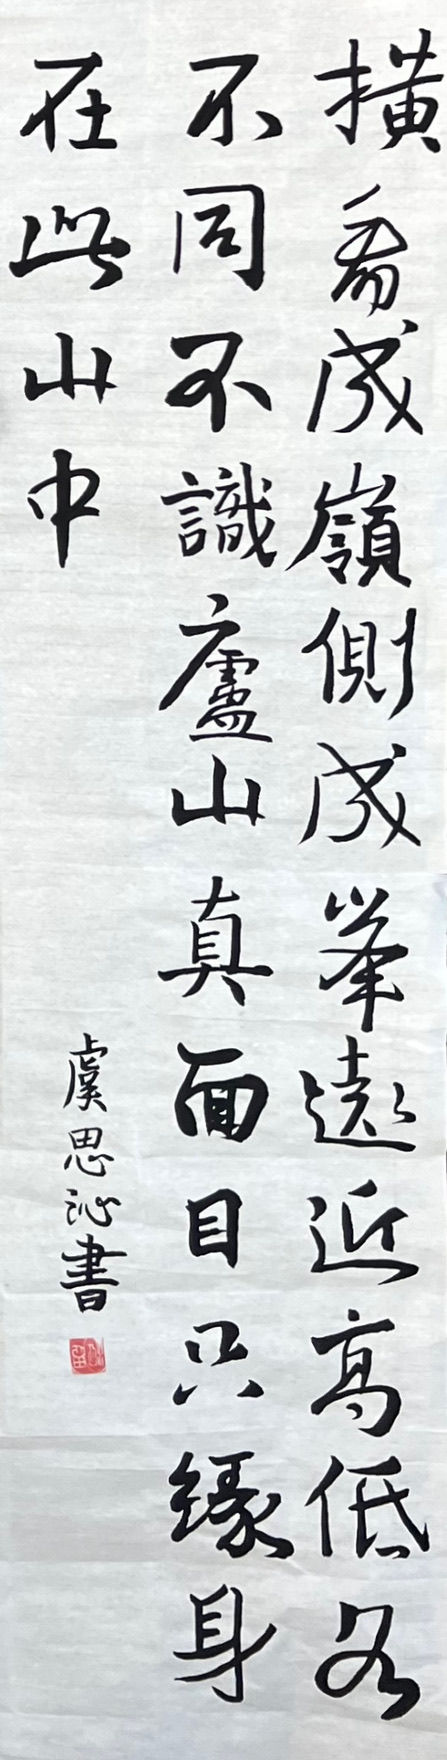 横看成嶺側成峯遠近高低各
不同不識廬山真面目只緣身
在此山中
虞思沁書